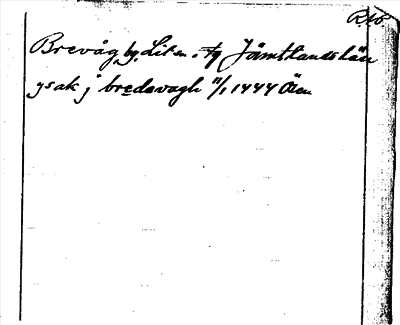 Brevåg by, Lit sn. Jämtlands län
ysak j bredavagh 11/1 1444 Äém